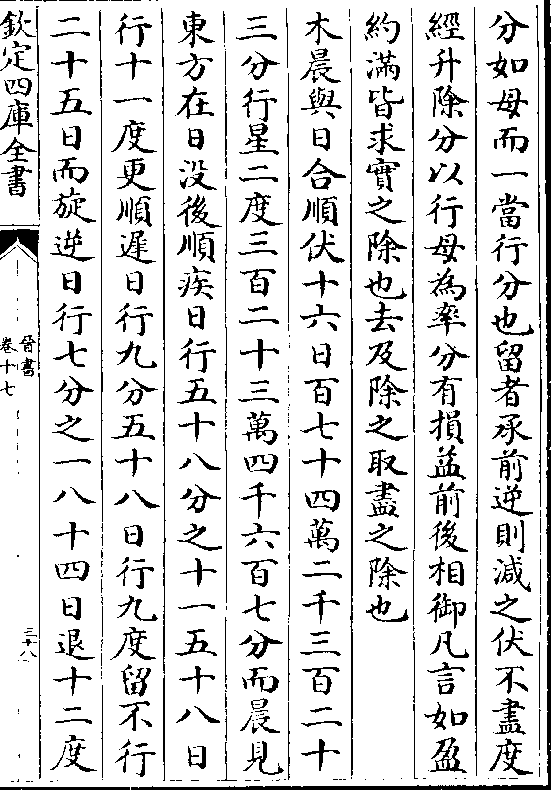 分如母而一當行分也留者承前逆則減之伏不盡度
經升除分以行母為率分有損益前後相御凡言如盈
約滿皆求實之除也去及除之取盡之除也
木晨與日合順伏十六日百七十四萬二千三百二十
三分行星二度三百二十三萬四千六百七分而晨見
東方在日没後順疾日行五十八分之十一五十八日
行十一度更順遲日行九分五十八日行九度留不行
二十五日而旋逆日行七分之一八十四日退十二度
欽定四庫全書
晉書
卷十七
三十八